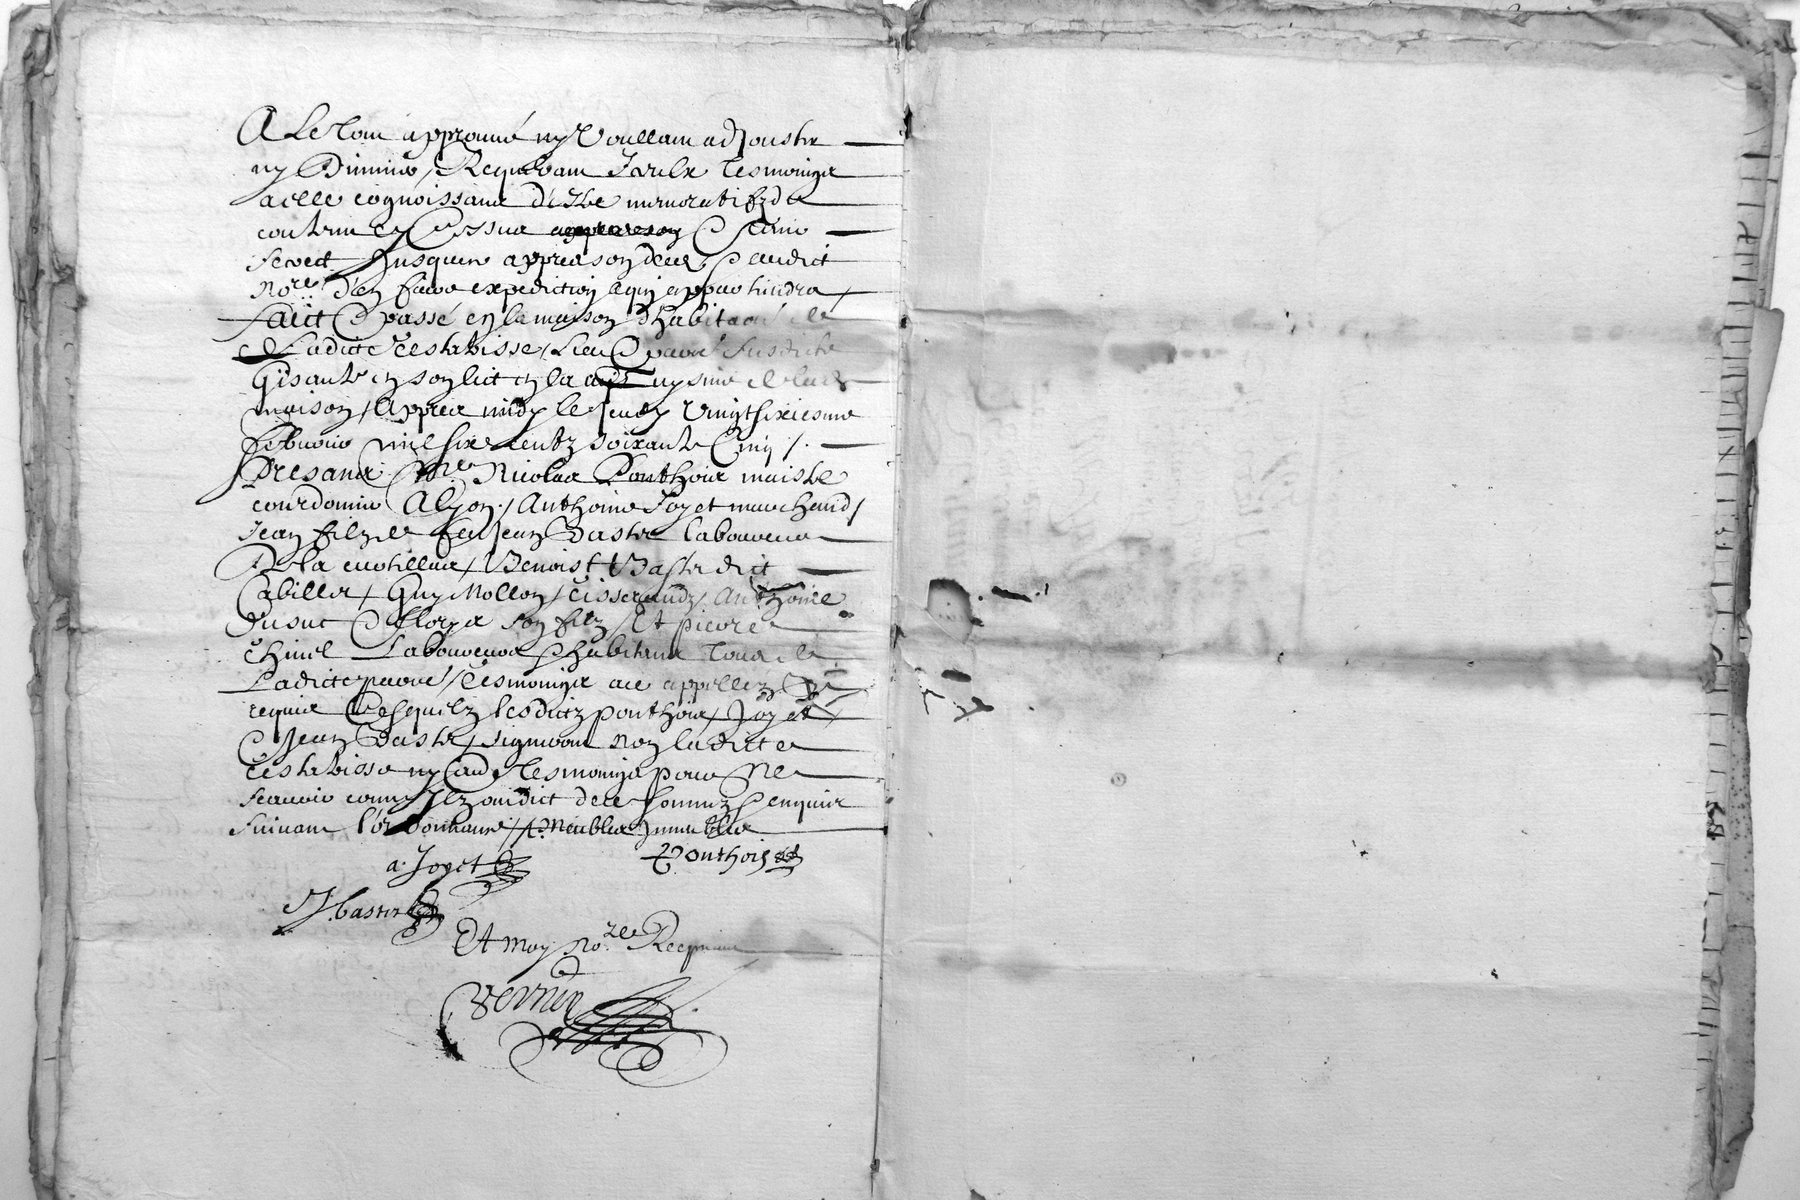 A Le tout approuvé ny Voullant adjouster
ny Diminue / Requerant Iceulx tesmoingz
a elle cognoissant d'estre memoratifz de
contenu cy dessus Et tenir
secret jusques appres son deces Et audict
No.re d'en faire expediction a qui appartiendra /
Faict Et passé en la maison d'habitaon de
Ladicte Testatrisse / Lieu Et parre susdicte
Gisante en son lict en la cuysine de lade
maison / appres midy le jeudy Vingt sixiesme
febvrier mil six centz soixante Cinq /.
Presantz Me Nicolas Ponthoix maistre
courdonnier A Lyon / Anthoine Joyet marchand /
Jean filz de feu Jean Baster laboureur
De la / Benoist Baster dict
Cabillet / Guy Mollon / tisserand / Anthoine
dusuc Et Florys son filz / Et pierre
Chinel Laboureur Et habitantz tous de
Ladicte parre / tesmoingz a ce appellez Et
requis Desquelz lesdictz ponthoix / Joyet /
Et Jean Baster / signeront Non ladicte
Testatrisse ny aud. tesmoingz pour Ne
scavoir comme Ilz ont dict de ce sommez Et enquis
suivant l'ordonnance / p. Meubles Immeubles
a. Joyet Ponthoix
J. baster
Et moy No.re Recepvant
Vernin